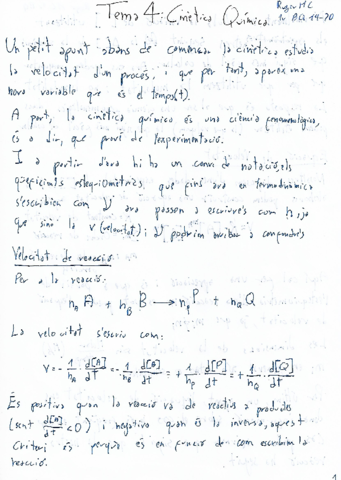 Tema 4: Cinètica Química
Roger MC
1r BQ 19-20
Un petit apunt abans de començar, la cinètica estudia
la velocitat d'un procés, i que per tant, apareix una
nova variable que és el temps(t).
A part, la cinètica química és una ciència fenomenològica,
és a dir, que prové de l'experimentació.
I a partir d'ara hi ha un canvi de notació, els
coeficients estequiomètrics, que fins ara en termodinàmica
s'escribien com ν ara passen a escriure's com n, ja
que sinó la v (velocitat) i ν podríem arribar a confondre's
Velocitat de reacció
Per a la reacció:
n_A A + n_B B → n_P P + n_Q Q
La velocitat s'escriu com:
v = - 1/n_A d[A]/dT = - 1/n_B d[B]/dt = + 1/n_P d[P]/dt = + 1/n_Q d[Q]/dt
És positiva quan la reacció va de reactius a productes
(sent d[A]/dt < 0) i negativa quan és la inversa, aquest
criteri és perquè és en funció de com escribim la
reacció.
1